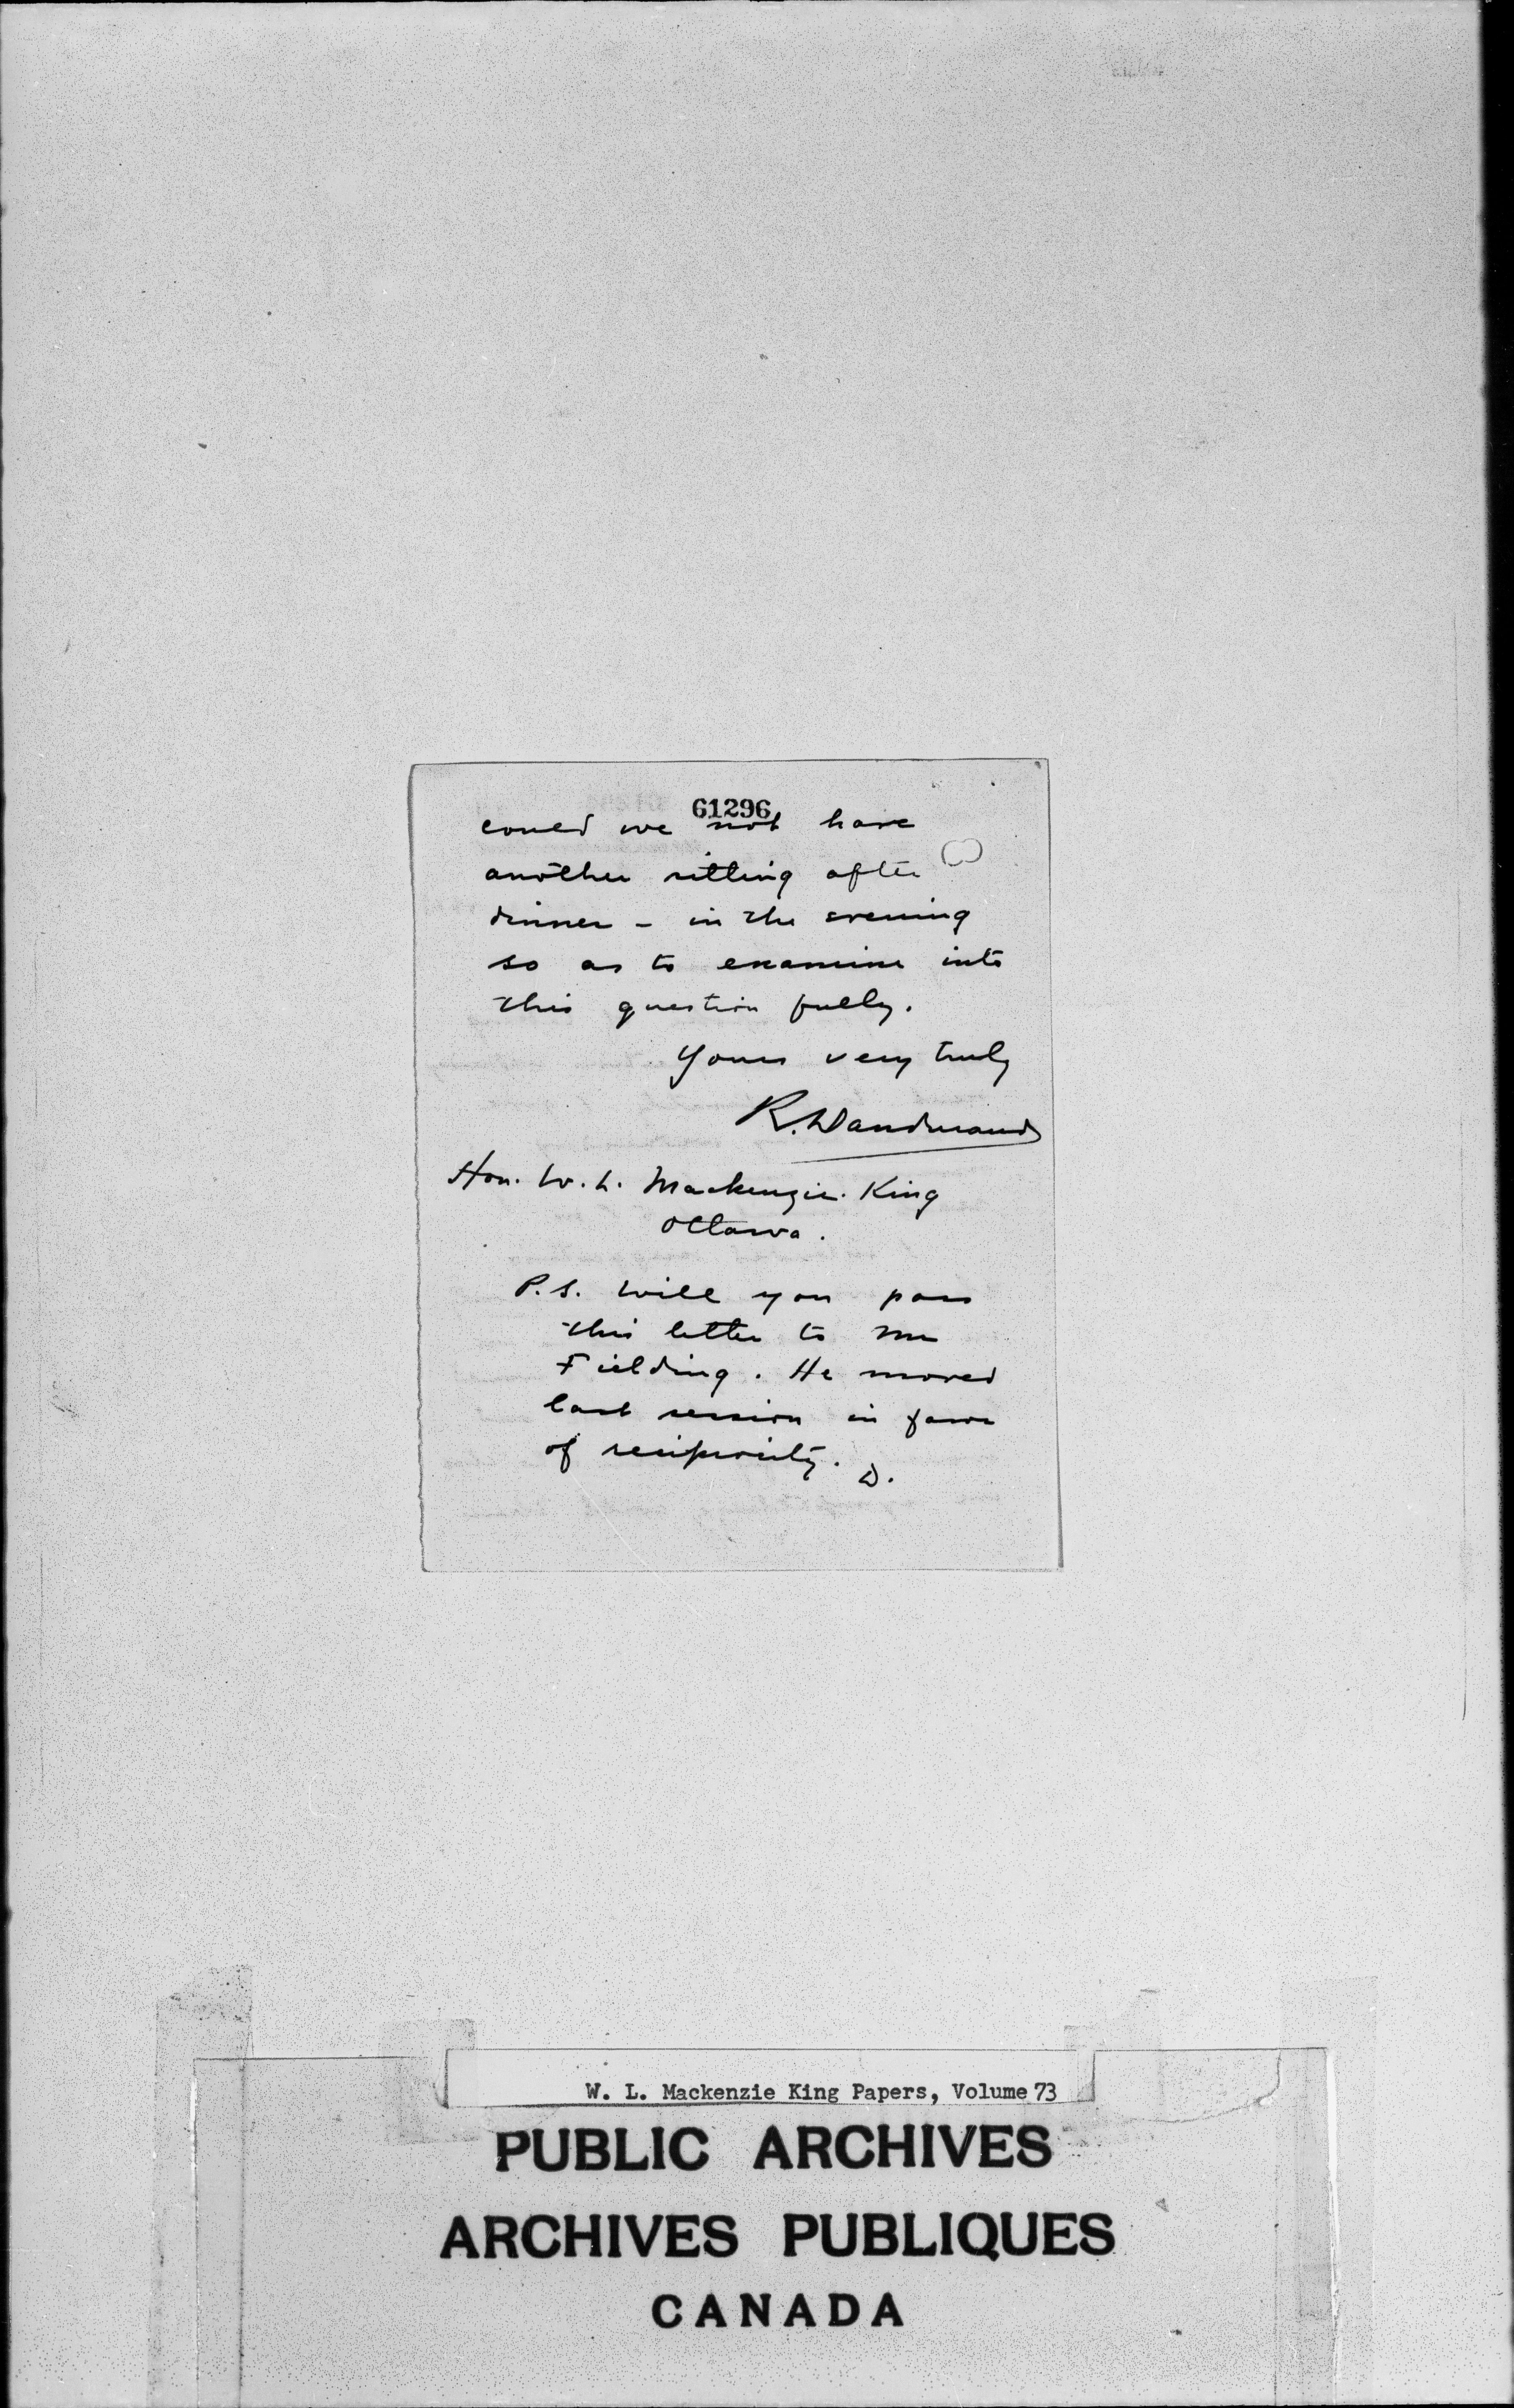 61296
could we not have
another sitting after
dinner - in the evening
so as to examine into
this question fully.
Yours very truly
R. Dandurand
Hon. W. L. Mackenzie King
Ottawa.
P.S. Will you pass
this letter to Mr
Fielding. He moved
last session in favor
of reciprocity. D.
W. L. Mackenzie King Papers, Volume 73
PUBLIC ARCHIVES
ARCHIVES PUBLIQUES
CANADA